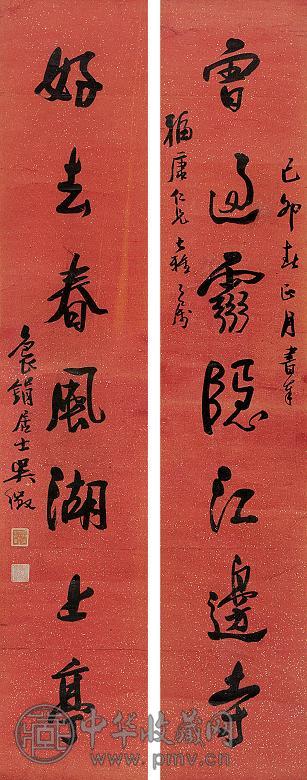 己卯春正月書奉
曾過靈隱江邊寺
仁兄大雅之屬
好去春風湖上亭
袌鋗居士吳徵
中华收藏网
www.pmv.cn